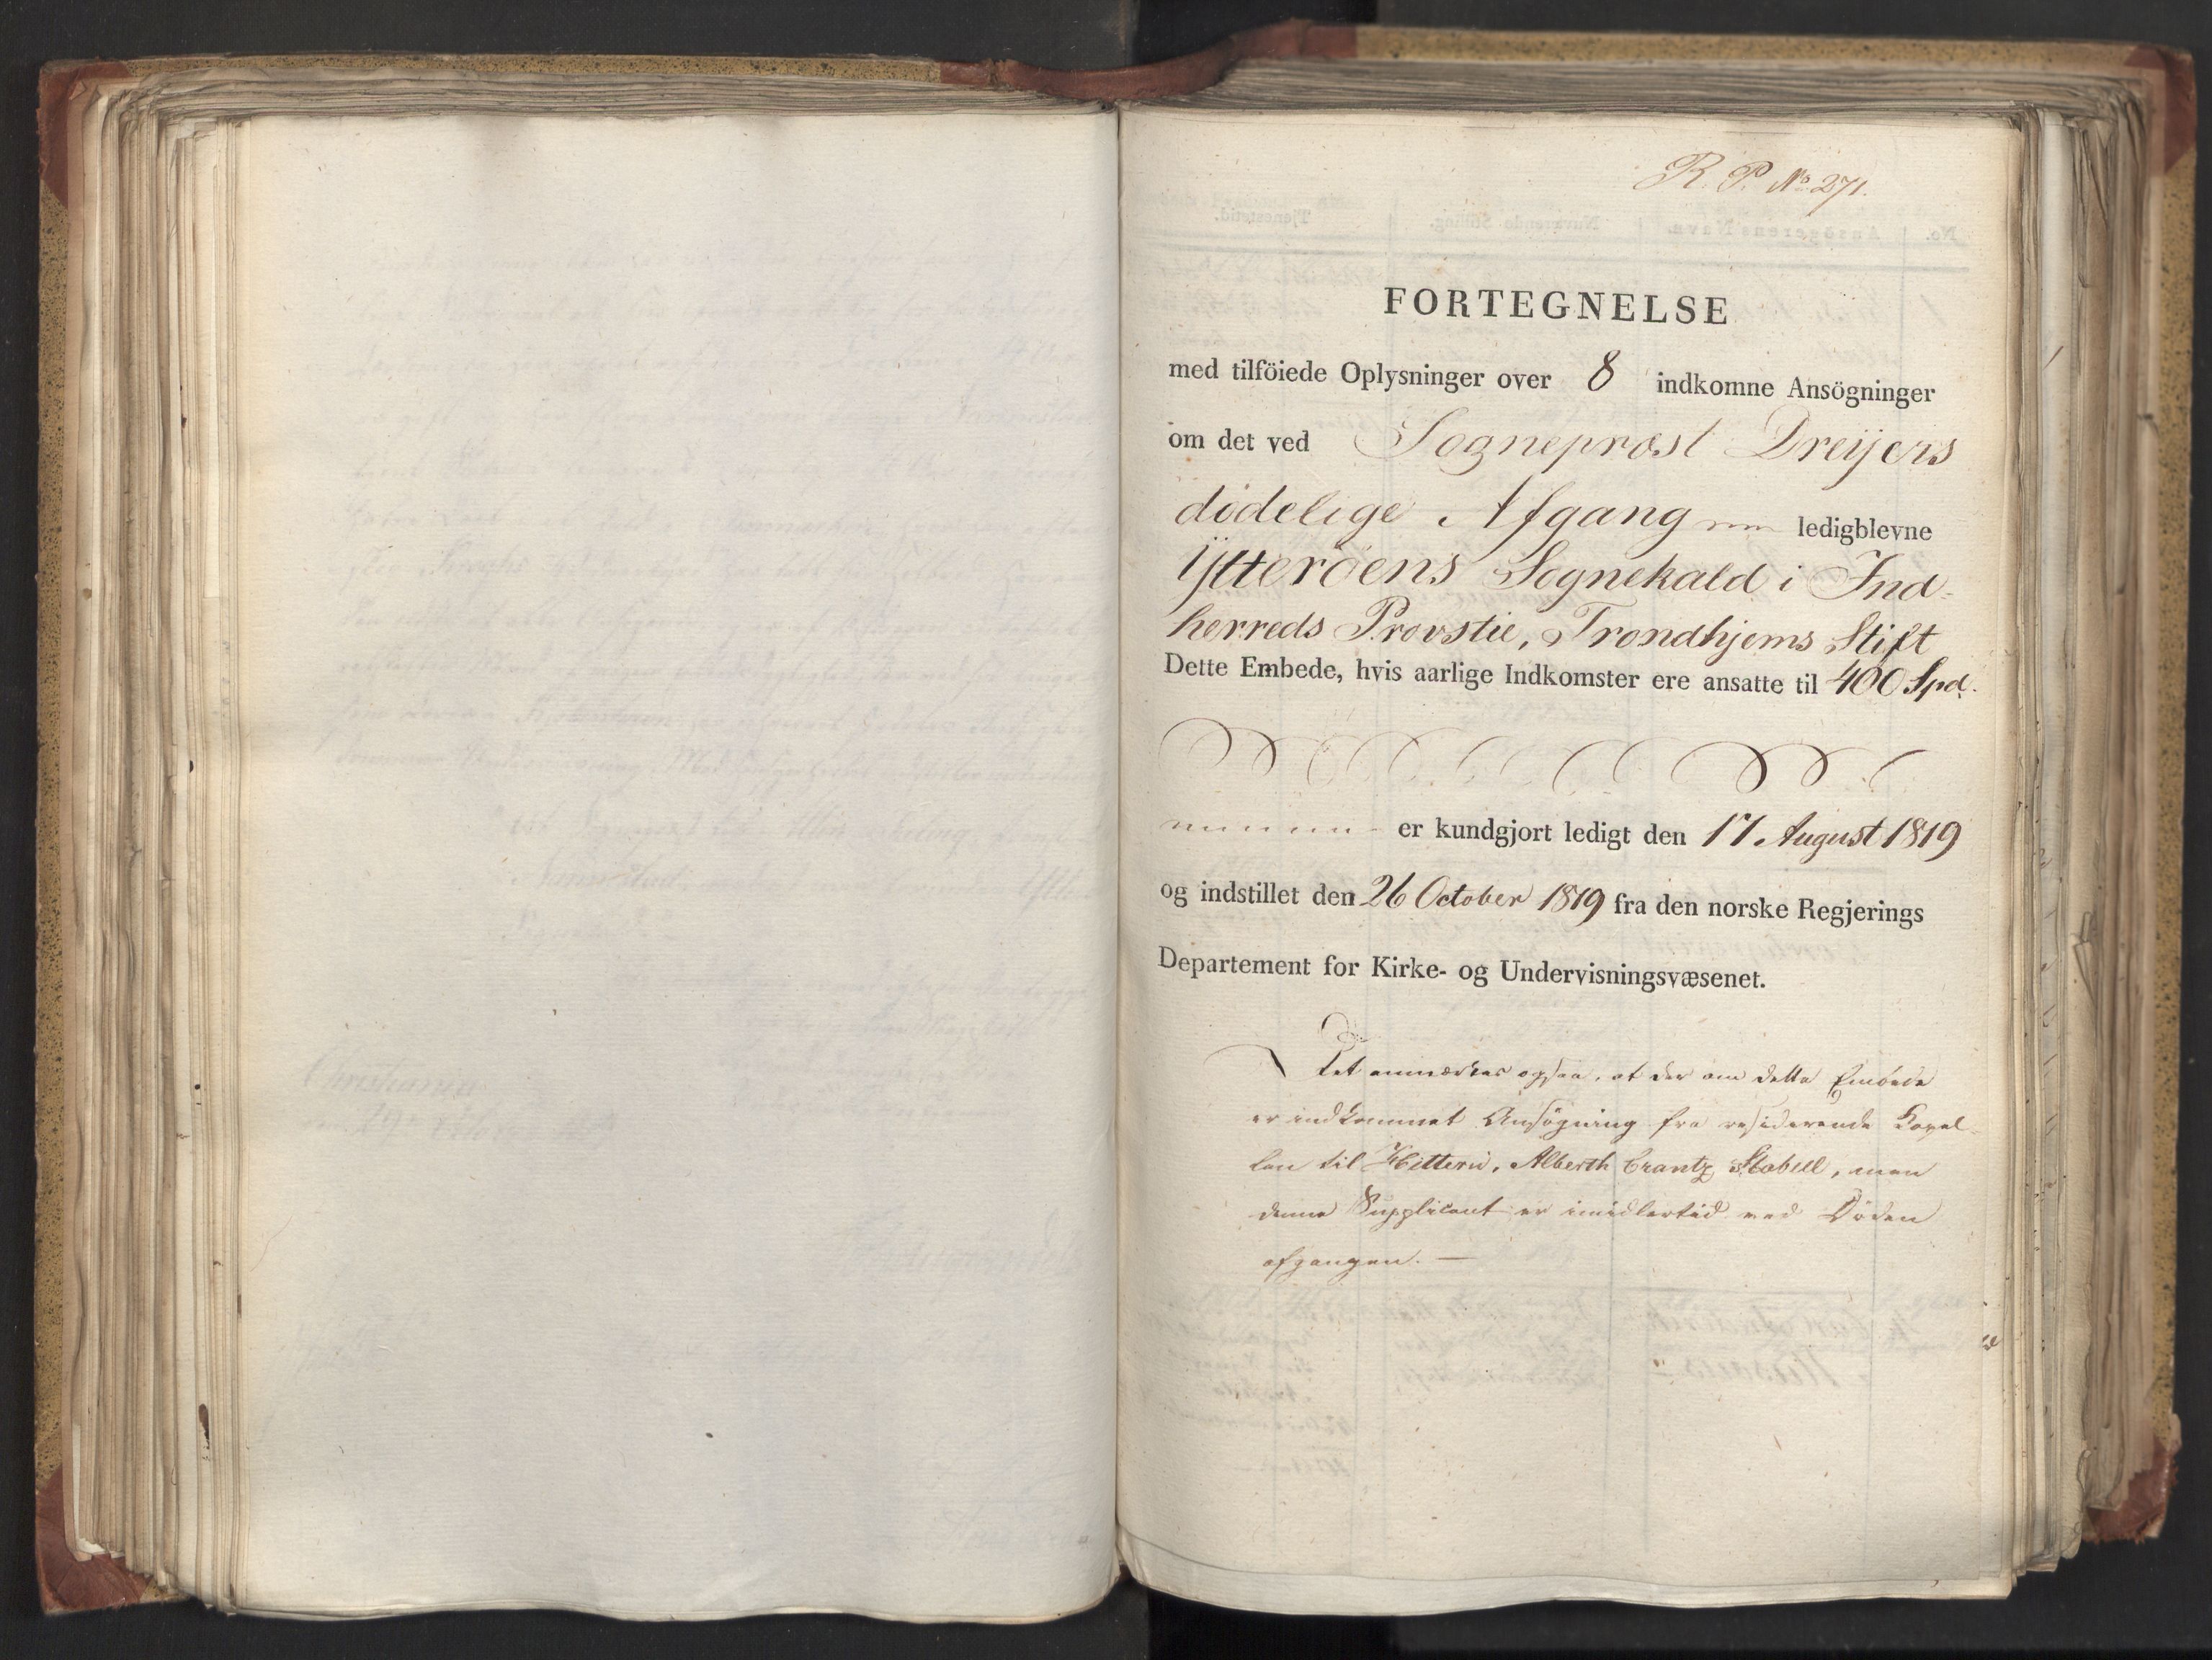 R. P. No. 271.
FORTEGNELSE
med tilföiede Oplysninger over 8 indkomne Ansögninger
om det ved Sognepræst Dreijers
dödelige Afgang ledigblevne
Ÿtteröens Sognekald i Ind-
herreds Provstie, Trondhjems Stift
Dette Embede, hvis aarlige Indkomster ere ansatte til 400 Spd.
er kundgjort ledigt den 17 August 1819
og indstillet den 26 October 1819 fra den norske Regjerings
Departement for Kirke- og Undervisningsvæsenet.
Det anmærkes ogsaa, at der om dette Embede
er indkommet Ansögning fra residerende Kapel-
lan til Hitterö, Alberth Crantz Stabell, men
denne Supplicant er imidlertid ved Döden
afgangen. —